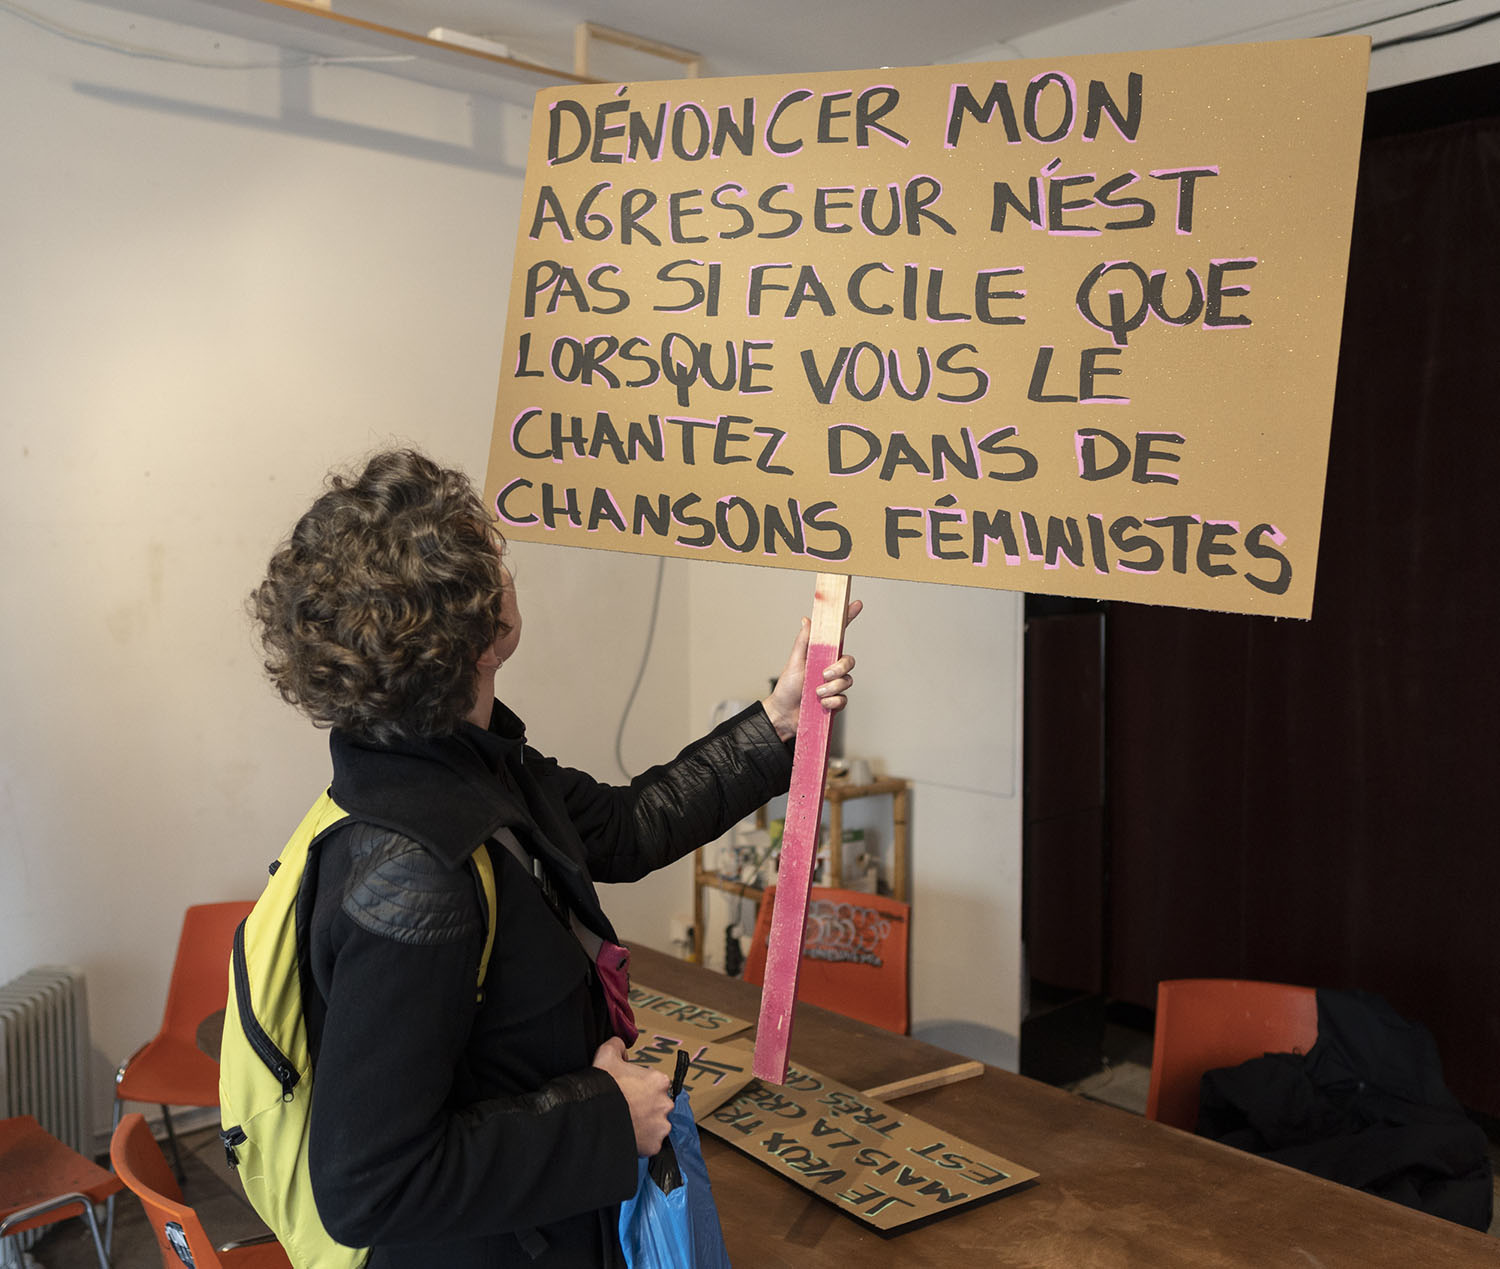 DÉNONCER MON
AGRESSEUR N'EST
PAS SI FACILE QUE
LORSQUE VOUS LE
CHANTEZ DANS DE
CHANSONS FÉMINISTES
JE VEUX
MAIS LA CRÈ
EST TRÈS